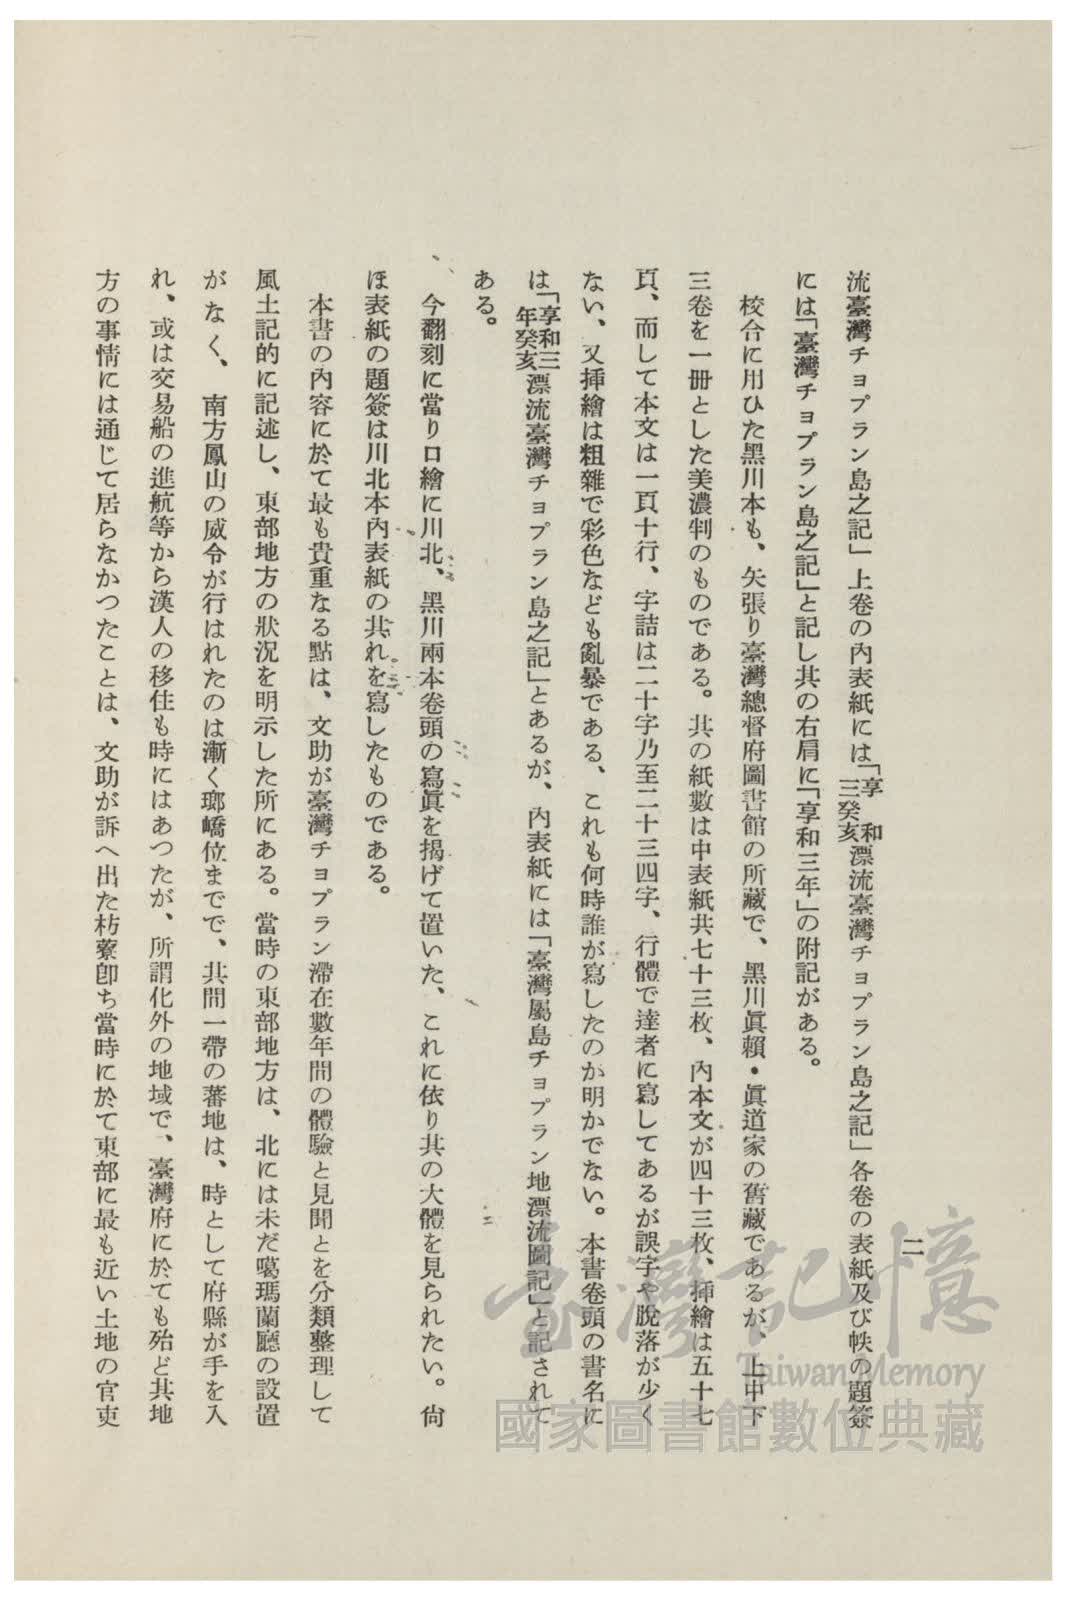 二
流臺灣チョプラン島之記」上卷の內表紙には「享和三癸亥漂流臺灣チョプラン島之記」各卷の表紙及び帙の題簽
には「臺灣チョプラン島之記」と記し其の右肩に「享和三年」の附記がある。
校合に用ひた黑川本も、矢張り臺灣總督府圖書館の所藏で、黑川眞賴・眞道家の舊藏であるが、上中下
三卷を一冊とした美濃判のものである。其の紙數は中表紙共七十三枚、內本文が四十三枚、挿繪は五十七
頁、而して本文は一頁十行、字詰は二十字乃至二十三四字、行體で達者に寫してあるが誤字や脫落が少く
ない、又挿繪は粗雜で彩色なども亂暴である、これも何時誰が寫したのか明かでない。本書卷頭の書名に
は「享和三年癸亥漂流臺灣チョプラン島之記」とあるが、內表紙には「臺灣屬島チョプラン地漂流圖記」と記されて
ある。
今翻刻に當り口繪に川北、黑川兩本卷頭の寫眞を揭げて置いた、これに依り其の大體を見られたい。尙
ほ表紙の題簽は川北本內表紙の其れを寫したものである。
本書の內容に於て最も貴重なる點は、文助が臺灣チョプラン滯在數年間の體驗と見聞とを分類整理して
風土記的に記述し、東部地方の狀況を明示した所にある。當時の東部地方は、北には未だ噶瑪蘭廳の設置
がなく、南方鳳山の威令が行はれたのは漸く瑯嶠位までで、其間一帶の蕃地は、時として府縣が手を入
れ、或は交易船の進航等から漢人の移住も時にはあつたが、所謂化外の地域で、臺灣府に於ても殆ど其地
方の事情には通じて居らなかつたことは、文助が訴へ出た枋藔卽ち當時に於て東部に最も近い土地の官吏
臺灣記憶
Taiwan Memory
國家圖書館數位典藏